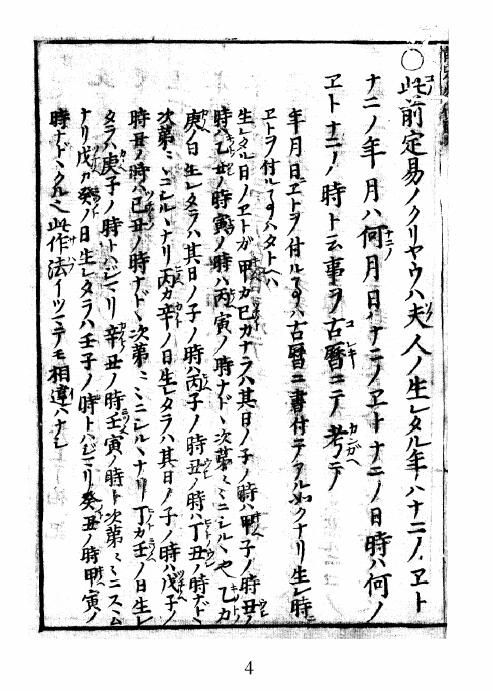 〇此前定易ノクリヤウハ夫人ノ生レタル年ハ十二ノヱト
ナニノ年月ハ何月日ハナニノヱトナニノ日時ハ何ノ
ヱトナニノ時ト云事ヲ古暦ニテ考ヘテ
年月日ヱトヲ付ルヿハ古暦ニ書付テアル如クナリ生レ時ニ
ヱトヲ付ルヿハタトヘハ
生レタル日ノヱトガ甲カ己カナラハ其日ノ子ノ時ハ甲子ノ時丑ノ
時ハ乙丑ノ時寅ノ時ハ丙寅ノ時ナドヽ次第ミニシルヽ也乙カ
庚ノ日生レタラハ其日ノ子ノ時ハ丙子ノ時丑ノ時ハ丁丑ノ時ナドヽ
次第ミニシルヽナリ丙カ辛ノ日生レタラハ其日ノ子ノ時ハ戊子ノ
時丑ノ時ハ己丑ノ時ナドヽ次第ミニシルヽナリ丁カ壬ノ日生レ
タラハ庚子ノ時トハジマリ辛丑ノ時壬寅ノ時ト次第ミニスヽム
ナリ戊カ癸ノ日生レタラハ壬子ノ時トハジマリ癸丑ノ時甲寅ノ
時ナドヽクル也此作法イツニテモ相違ハナシ
4